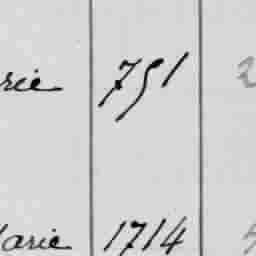 rie 751 2
Marie 1714